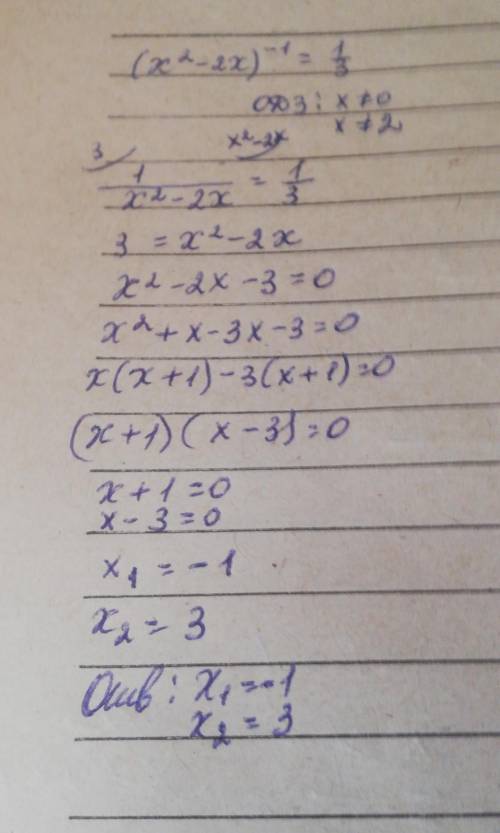 (x²-2x)⁻¹ = 1/3
ОДЗ: x≠0
x≠2
3 x²-2x
1/(x²-2x) = 1/3
3 = x²-2x
x²-2x-3=0
x²+x-3x-3=0
x(x+1)-3(x+1)=0
(x+1)(x-3)=0
x+1=0
x-3=0
x₁=-1
x₂=3
Отв: x₁=-1
x₂=3